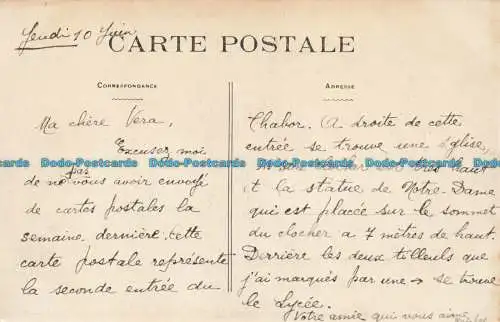 Jeudi 10 Juin
CARTE POSTALE
CORRESPONDANCE
Ma chère Vera,
Excusez moi
pas
de ne vous avoir envoyé
de cartes postales la
semaine dernière. Cette
carte postale représente
la seconde entrée du
ADRESSE
Chabor. A droite de cette
entrée se trouve une église,
clocher est très haut
et la statue de Notre-Dame
qui est placée sur le sommet
du clocher a 7 mètres de haut.
Derrière les deux tilleuls que
j'ai marqués par une → se trouve
le Lycée.
Votre amie qui vous aime
Dodo-Postcards Dodo-Postcards Dodo-Postcards Dodo-Postcards